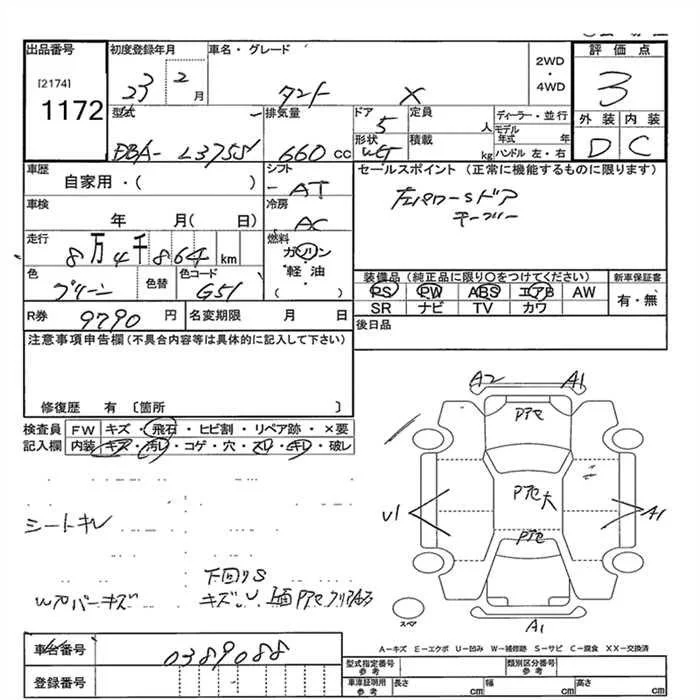 出品番号
[2174]
1172
初度登録年月
23 2 月
車名・グレード
タント X
2WD
・
4WD
評価点
3
外装 内装
D C
型式
DBA- L375S
排気量
660 cc
ドア
5
形状
定員
人
積載
kg
ディーラー・並行
モデル年式 年
ハンドル 左・右
車歴
自家用・( )
シフト
AT
セールスポイント (正常に機能するものに限ります)
左パワーSドア
キーフリー
車検
年 月( 日)
冷房
AC
走行
8万4千864 km
燃料
ガソリン
・
軽油
・
( )
色
グリーン
色替
色コード
G51
装備品 (純正品に限り○をつけてください)
PS PW ABS エアB AW
SR ナビ TV カワ
新車保証書
有・無
R券
9790 円
名変期限 月 日
後日品
注意事項申告欄(不具合内容等は具体的に記入して下さい)
修復歴 有 〔箇所 〕
検査員記入欄
FW キズ・飛石・ヒビ割・リペア跡・×要
内装 キズ・汚レ・コゲ・穴・スレ・キレ・破レ
シートキレ
下回りS
A2 A1
U1
A1
A1
スペア
A-キズ E-エクボ U-凹み W-補修跡 S-サビ C-腐食 XX-交換済
車台番号
0389088
登録番号
型式指定番号
参考
類別区分番号
参考
車庫証明用
参考
長さ cm
幅 cm
高さ cm